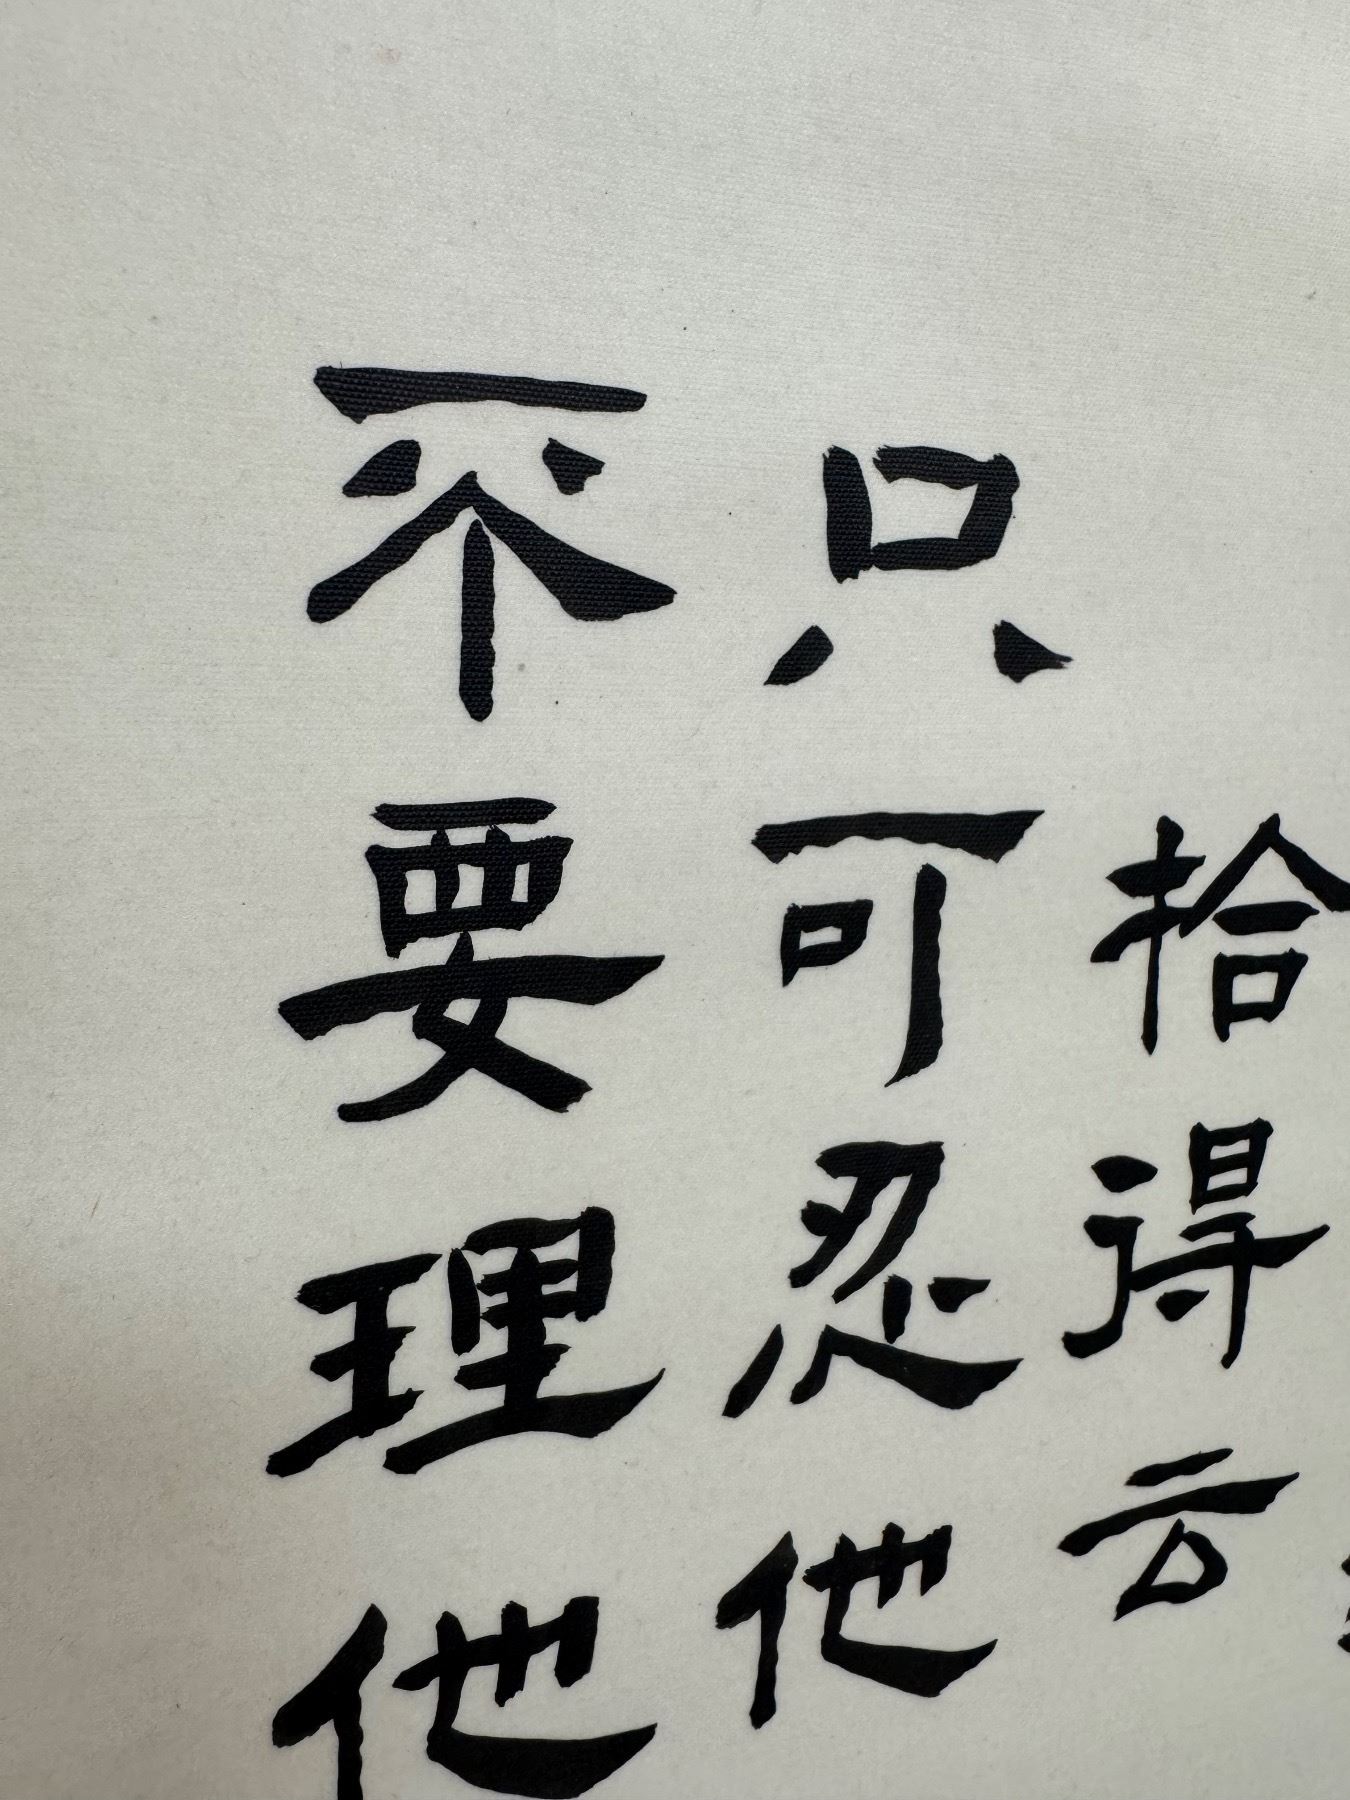 拾得云
只可忍他
不要理他